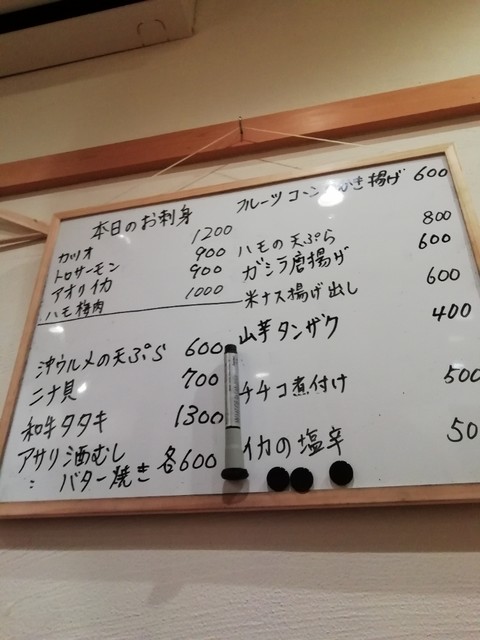 本日のお刺身
カツオ 1200
トロサーモン 900
アオリイカ 900
ハモ梅肉 1000
沖ウルメの天ぷら 600
ニナ貝 700
和牛タタキ 1300
アサリ酒むし
〃 バター焼き 各600
フルーツコーンかき揚げ 600
ハモの天ぷら 800
ガシラ唐揚げ 600
米ナス揚げ出し 600
山芋タンザク 400
チチコ煮付け 500
イカの塩辛 50